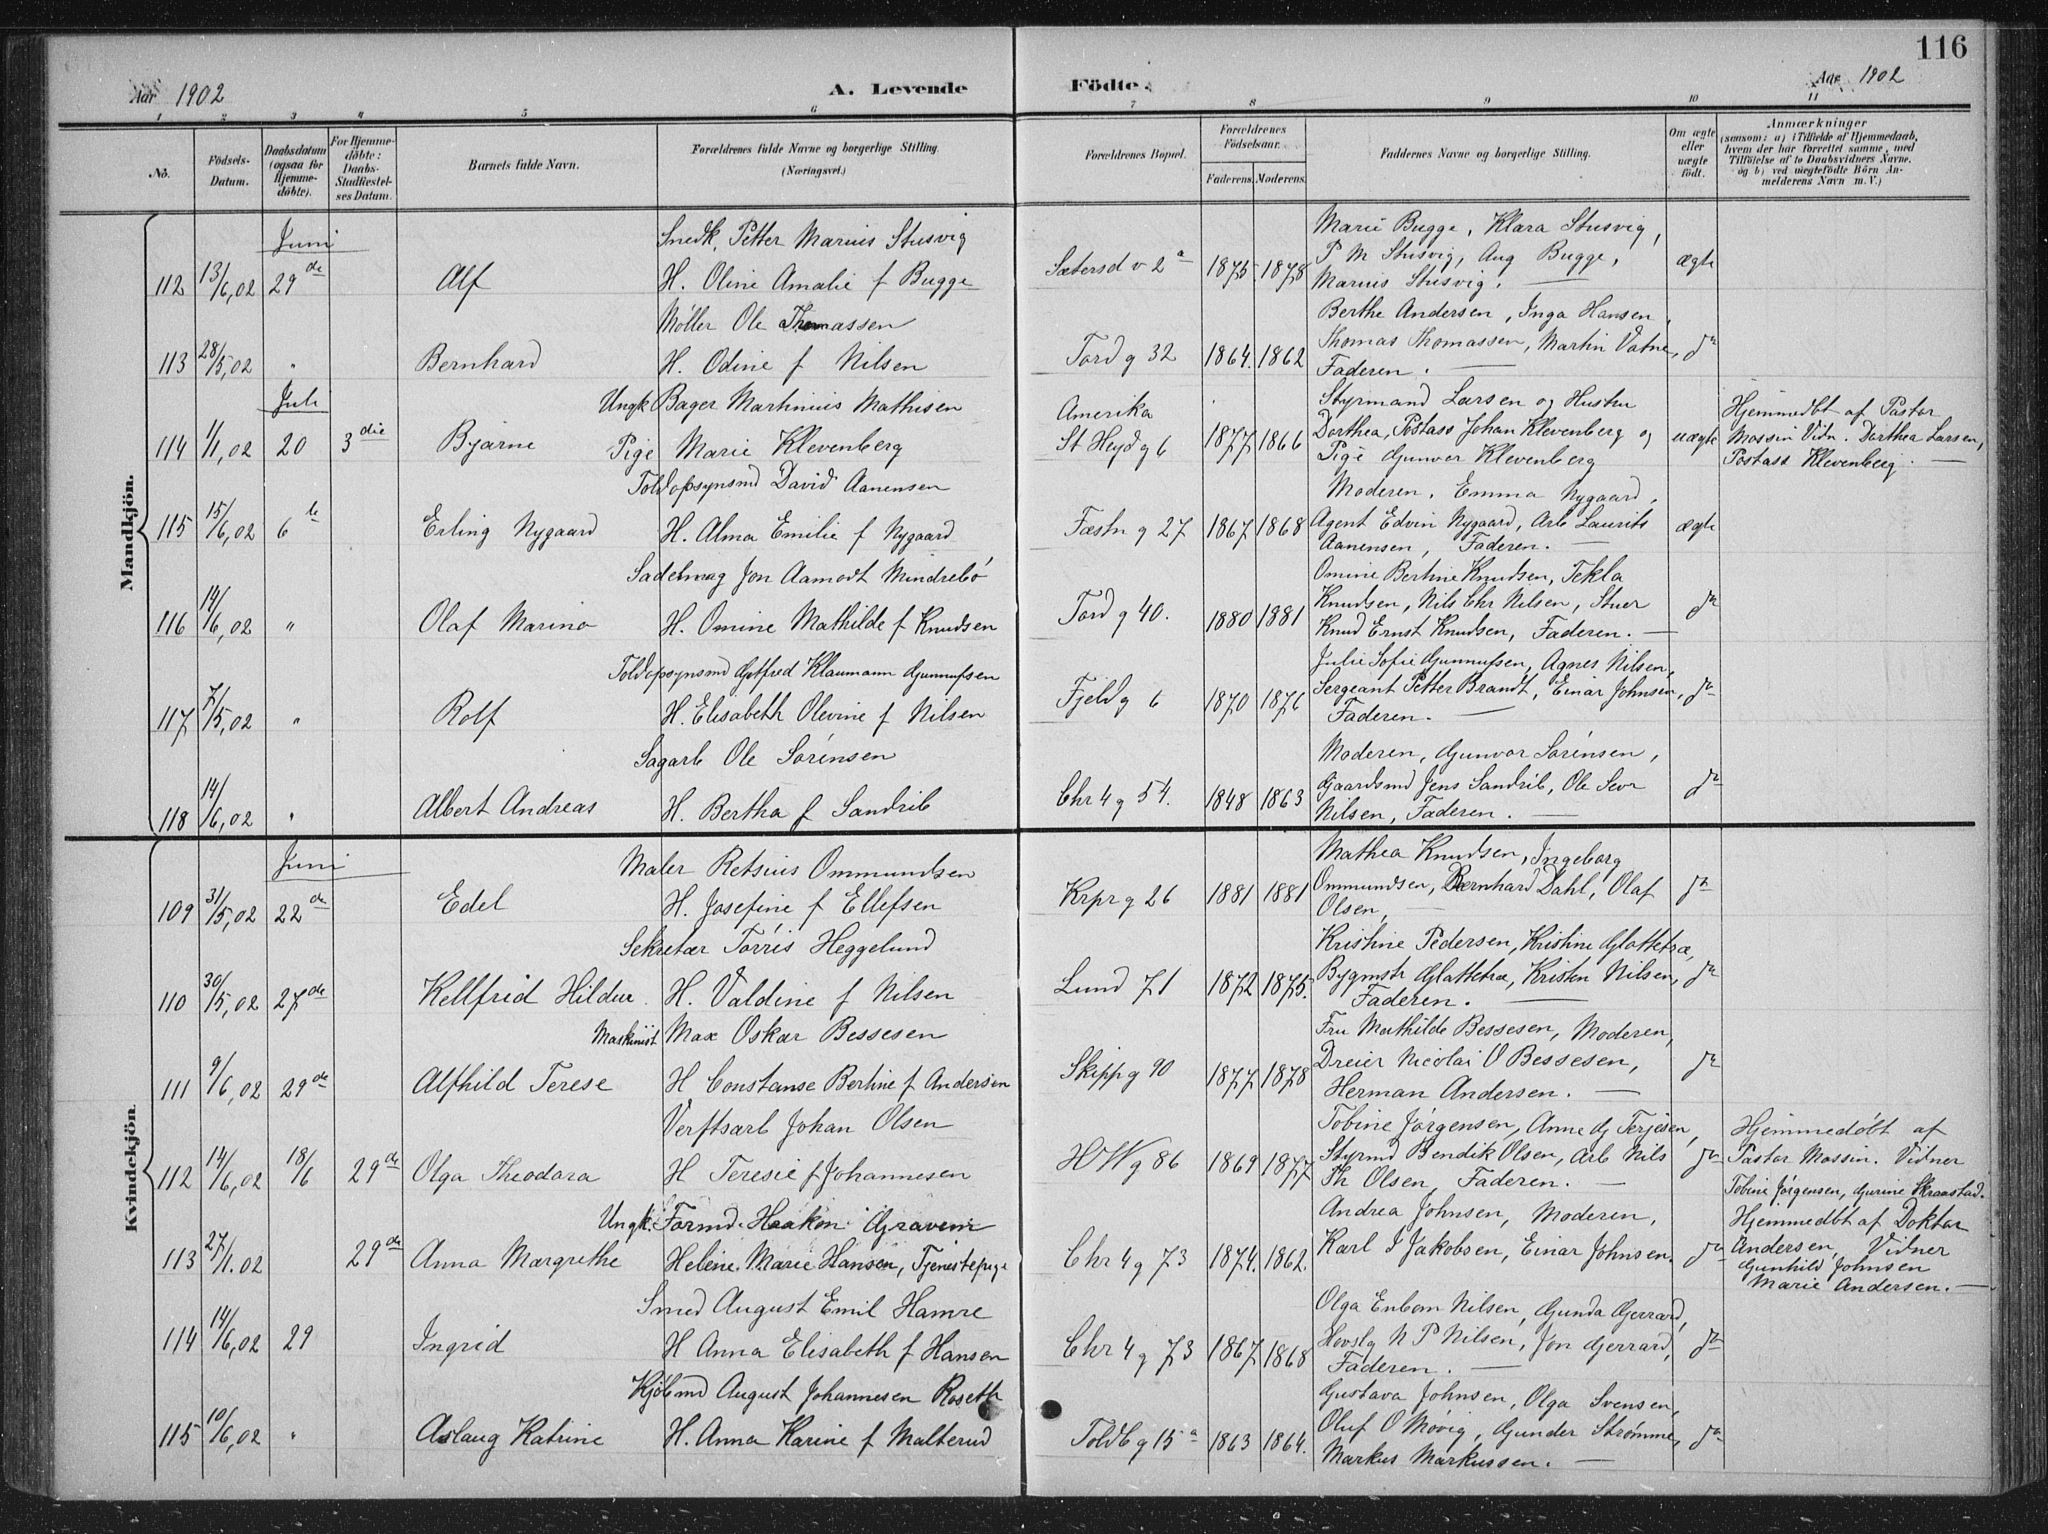 116
Aar 1902
A. Levende
Födte.
Aar 1902
1 2 3 4 5 6 7 8 9 10 11
No.
Födsels-Datum.
Daabsdatum (ogsaa for Hjemmedöbte).
For Hjemmedöbte: Daabs-Stadfæstelses Datum.
Barnets fulde Navn.
Forældrenes fulde Navne og borgerlige Stilling. (Næringsvei.)
Forældrenes Bopæl.
Forældrenes Födselsaar.
Faderens. Moderens.
Faddernes Navne og borgerlige Stilling.
Om ægte eller uægte födt.
Anmærkninger
(saasom: a) i Tilfælde af Hjemmedaab, hvem der har forrettet samme, med Tilföielse af to Daabsvidners Navne. og b) ved uægtefödte Börn Anmelderens Navn m. V.)
Mandkjön.
Juni
Snedk. Petter Marius Stusvig
Marie Bugge, Klara Stusvig,
112 13/6,02 29de Alf H. Oline Amalie f Bugge Sætersd v 2a 1875. 1878 P M Stusvig, Aug Bugge, ægte
Marius Stusvig. —
Møller Ole Thomassen
Berthe Andersen, Inga Hansen,
113 28/5,02 " Bernhard H. Odine f Nilsen Tord g 32 1864. 1862 Thomas Thomassen, Martin Vatne, do
Faderen. —
Juli
Ungk Bager Martinius Mathisen Amerika
Styrmand Larsen og Hustru
Hjemmedbt af Pastor
114 1/1,02 20 3die Bjarne Pige Marie Klevenberg St Heyd g 6 1877 1866 Dorthea, Postass Johan Klevenberg og uægte Mossin Vidn. Dorthea Larsen,
Pige Gunvor Klevenberg
Postass Klevenberg. —
Toldopsynsmd David Aanensen
Moderen, Emma Nygaard,
115 15/6,02 6te Erling Nygaard H. Alma Emilie f Nygaard Fæstn g 27 1867 1868 Agent Edvin Nygaard, Arb Laurits ægte
Aanensen, Faderen. —
Sadelmag Jon Aamodt Mindrebö
Omine Bertine Knudsen, Tekla
116 14/6,02 " Olaf Marino H. Omine Mathilde f Knudsen Tord g 40. 1880 1881 Knudsen, Nils Chr Nilsen, Stuer do
Knud Ernst Knudsen, Faderen. —
Toldopsynsmd Gotfred Klaumann Gunnufsen
Julie Sofie Gunnufsen, Agnes Nilsen,
117 7/5,02 " Rolf H. Elisabeth Olevine f Nilsen Fjeld g 6 1870 1876 Sergeant Petter Brandt, Einar Johnsen, do
Faderen. —
Sagarb Ole Sörensen
Moderen, Gunvor Sörensen,
118 14/6,02 " Albert Andreas H. Bertha f Sandrib Chr 4 g 54. 1848 1863 Gaardsmd Jens Sandrib, Ole Sevr do
Nilsen, Faderen. —
Kvindekjön.
Juni
Maler Retsius Ommundsen
Mathea Knudsen, Ingeborg
109 31/5,02 22de Edel H. Josefine f Ellefsen Krpr g 26 1881 1881 Ommundsen, Bernhard Dahl, Olaf do
Olsen, —
Sekretær Torris Heggelund
Kristine Pedersen, Kristine Glattetræ,
110 30/5,02 27de Kellfrid Hildur. H. Valdine f Nilsen Lund 71 1872 1875. Bygmstr Glattetræ, Kristen Nilsen, do
Faderen. —
Maskinist Max Oskar Bessesen
Fru Mathilde Bessesen, Moderen,
111 9/6,02 29de Alfhild Terese H Constanse Bertine f Andersen Skipp g 90 1877 1878 Dreier Nicolai O Bessesen, do
Herman Andersen. —
Verftsarb Johan Olsen
Tobine Jørgensen, Anne G Terjesen,
Hjemmedöbt af
112 14/6,02 18/6 29de Olga Theodora H Teresie f Johannesen H W g 86 1869 1877 Styrmd Bendik Olsen, Arb Nils do Pastor Mossin. Vidner
Th Olsen, Faderen. —
Tobine Jørgensen, Gurine Skraastad.
Ungk. Formd. Haakon Graven
Andrea Johnsen, Moderen,
Hjemmedbt af Doktor
113 27/1.02 29de Anna Margrethe Helene Marie Hansen, Tjenestepige Chr 4 g 73 1874. 1862. Karl J Jakobsen, Einar Johnsen. do Andersen, Vidner
Gunhild Johnsen
Marie Andersen. —
Smed August Emil Hamre
Olga Enbom Nilsen, Gunda Gjerrard,
114 14/6,02 29 Ingrid H Anna Elisabeth f Hansen Chr 4 g 73 1867 1868 Hovslg N P Nilsen, Jon Gjerrard, do
Faderen. —
Kjöbmd August Johannesen Roseth
Gustava Johnsen, Olga Svensen,
115 10/6,02 " Aslaug Katrine H. Anna Karine f Malterud Toldb g 15a 1863 1864. Oluf O Movig, Gunder Strømme, do
Markus Markussen. —